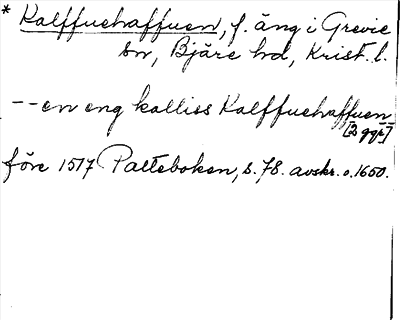 * Kalffuehaffuen, f. äng i Grevie
sn, Bjäre hd, Krist. l.
-- en eng kalliss Kalffuehaffuen
[2 ggr]
före 1517 Palteboken, s. 78. avskr. o. 1650.